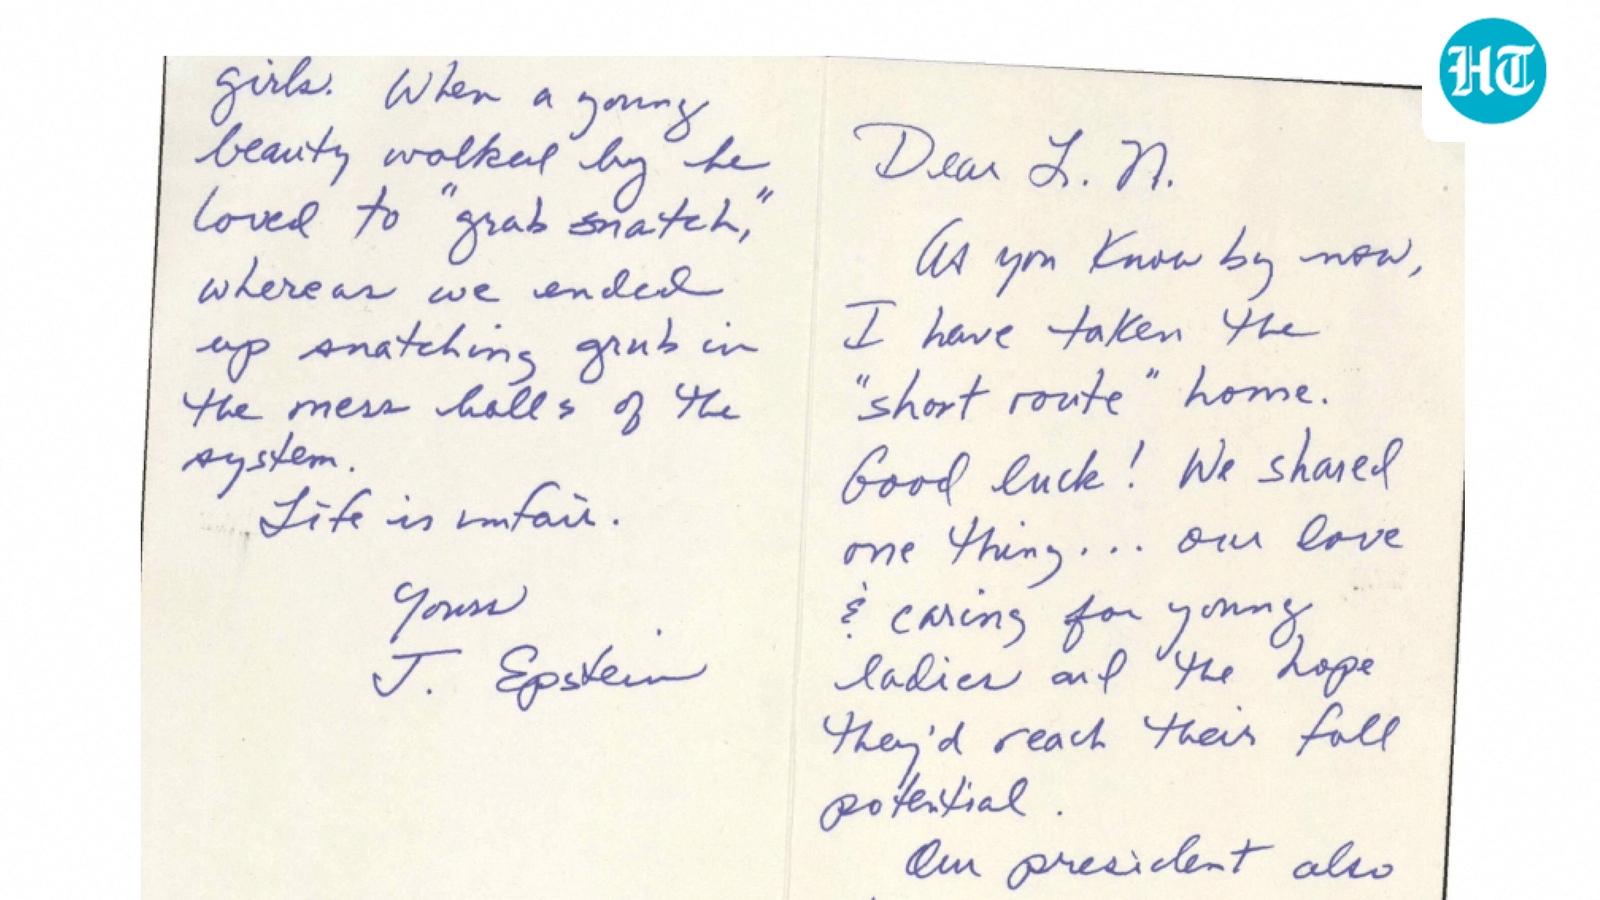 HT
girls. When a young
beauty walked by he
loved to "grab snatch,"
whereas we ended
up snatching grub in
the mess halls of the
system.
Life is unfair.
Yours
J. Epstein
Dear L. N.
As you know by now,
I have taken the
"short route" home.
Good luck! We shared
one thing... our love
& caring for young
ladies and the hope
they'd reach their full
potential.
Our president also